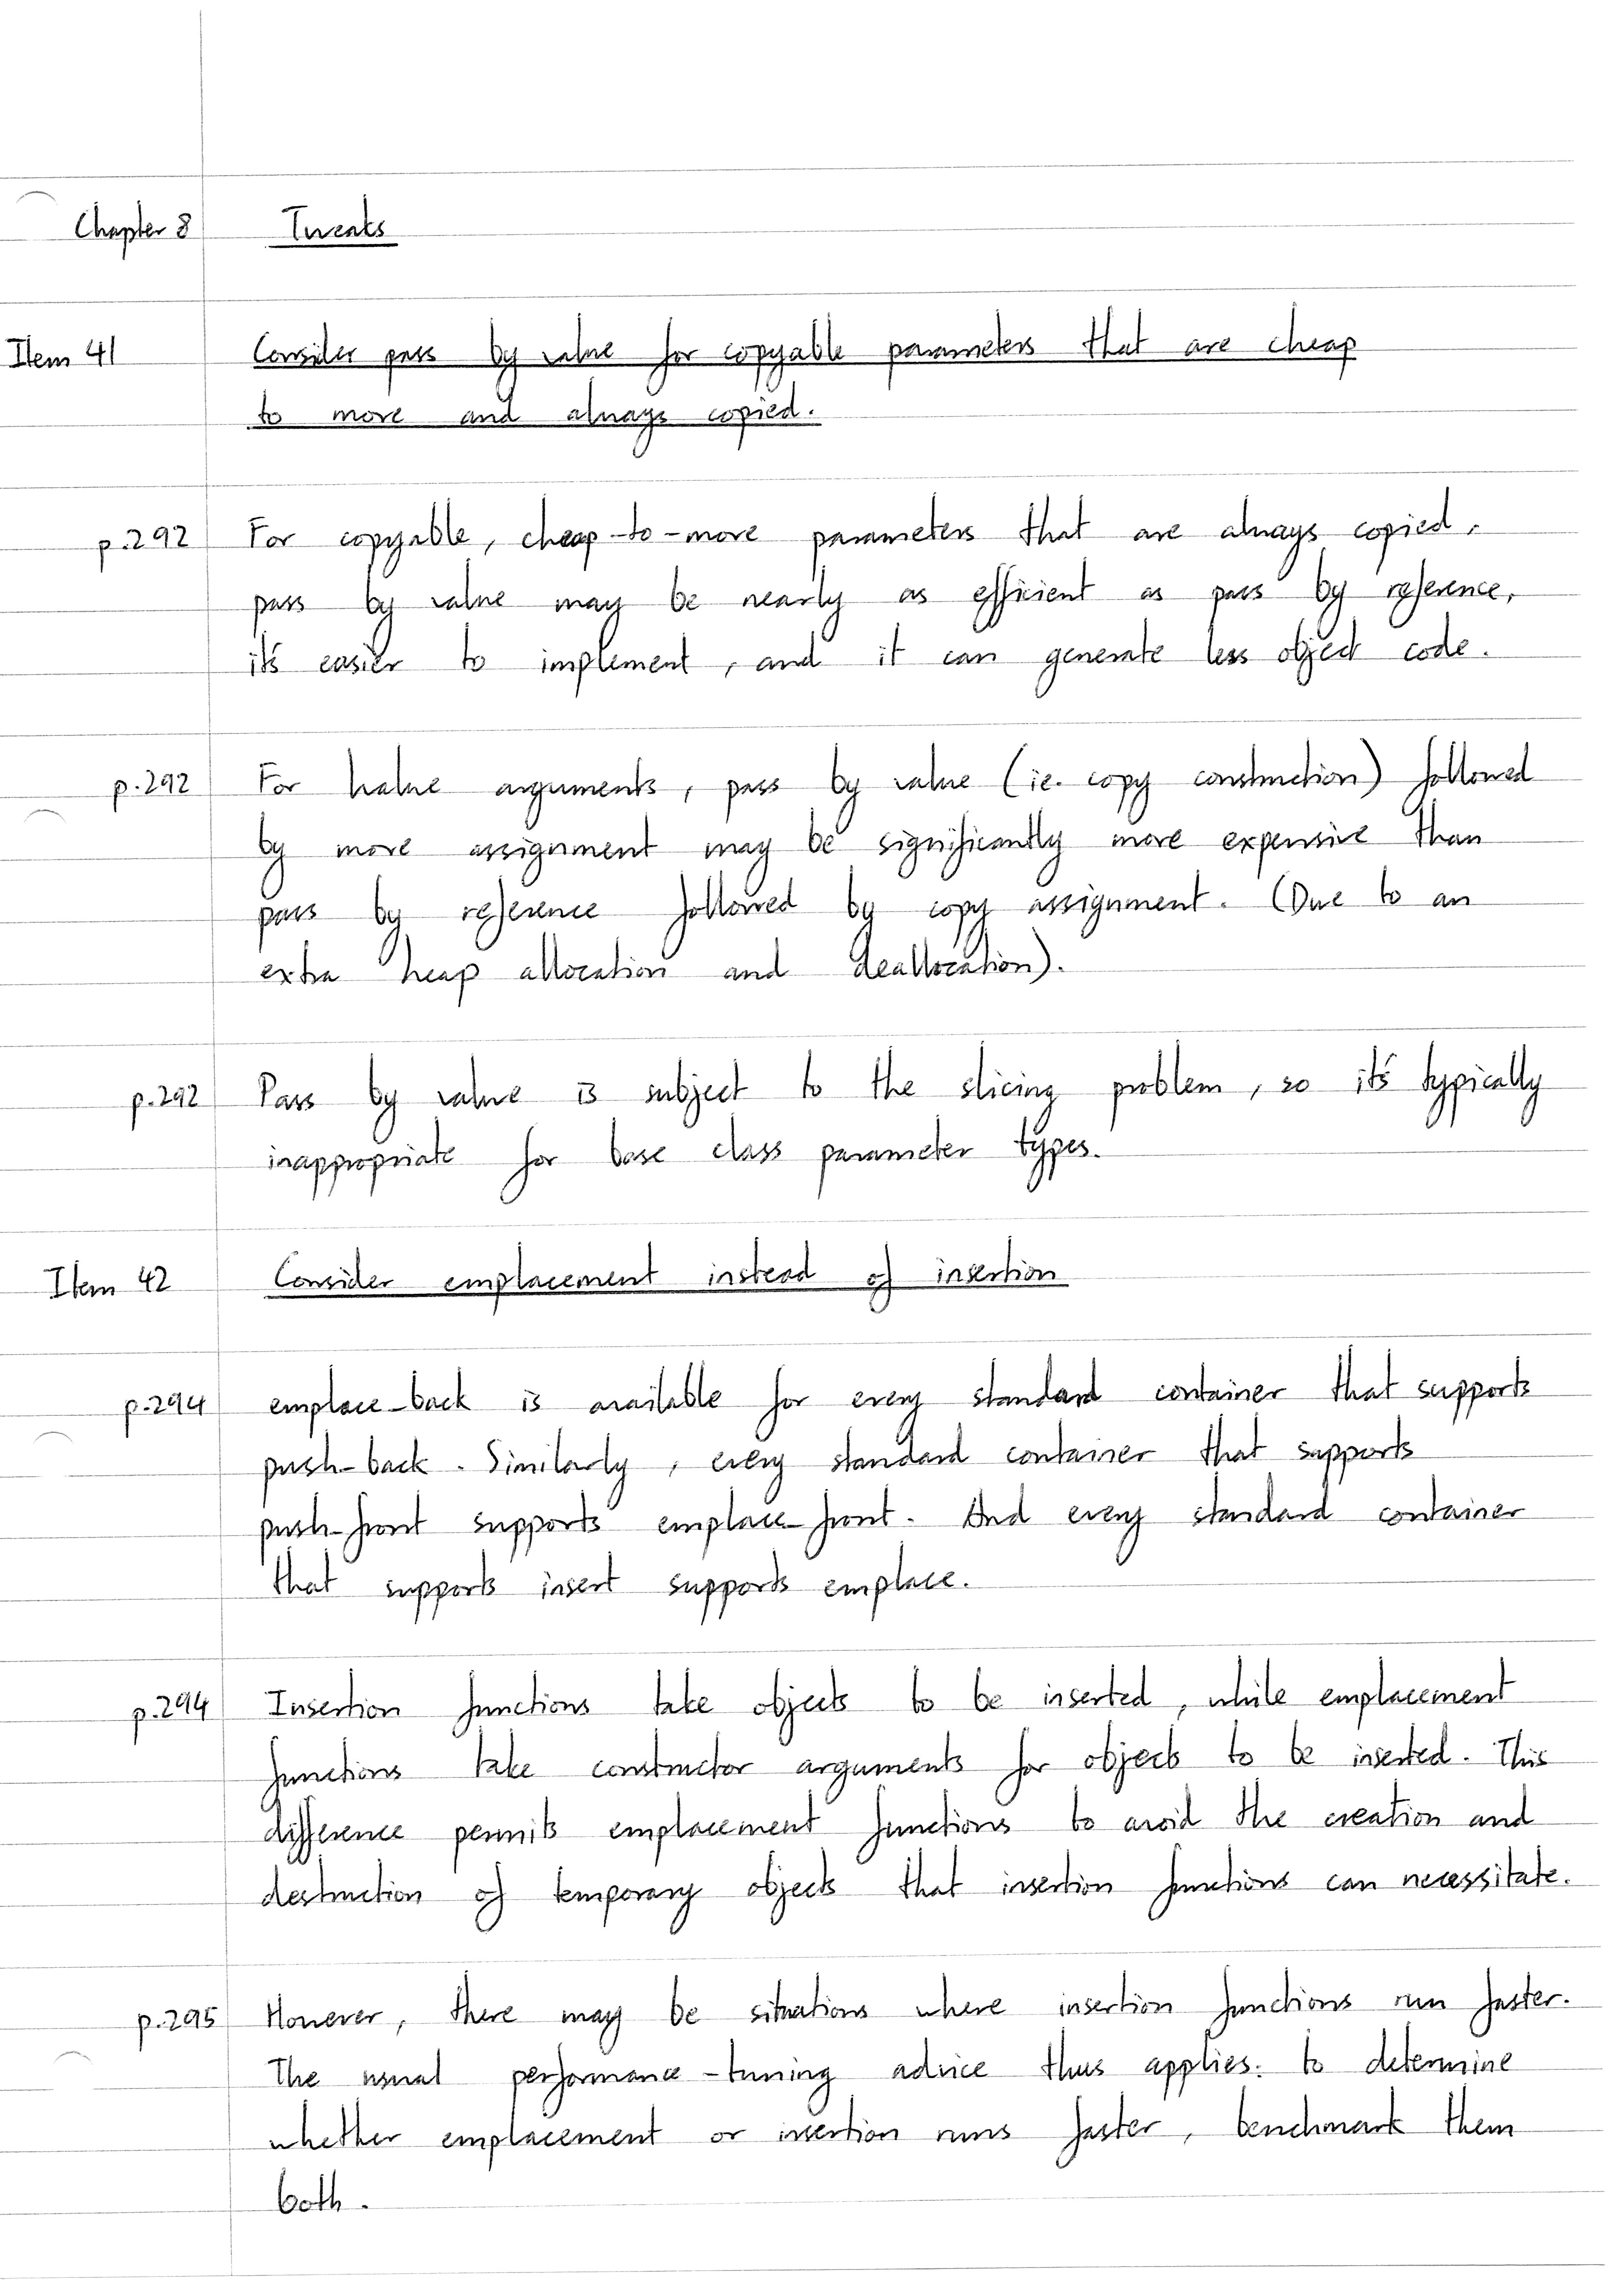 Chapter 8 Tweaks
Item 41 Consider pass by value for copyable parameters that are cheap
to move and always copied.
p.292 For copyable, cheap-to-move parameters that are always copied,
pass by value may be nearly as efficient as pass by reference,
it's easier to implement, and it can generate less object code.
p.292 For lvalue arguments, pass by value (ie. copy construction) followed
by move assignment may be significantly more expensive than
pass by reference followed by copy assignment. (Due to an
extra heap allocation and deallocation).
p.292 Pass by value is subject to the slicing problem, so it's typically
inappropriate for base class parameter types.
Item 42 Consider emplacement instead of insertion
p.294 emplace_back is available for every standard container that supports
push_back. Similarly, every standard container that supports
push_front supports emplace_front. And every standard container
that supports insert supports emplace.
p.294 Insertion functions take objects to be inserted, while emplacement
functions take constructor arguments for objects to be inserted. This
difference permits emplacement functions to avoid the creation and
destruction of temporary objects that insertion functions can necessitate.
p.295 However, there may be situations where insertion functions run faster.
The usual performance-tuning advice thus applies: to determine
whether emplacement or insertion runs faster, benchmark them
both.